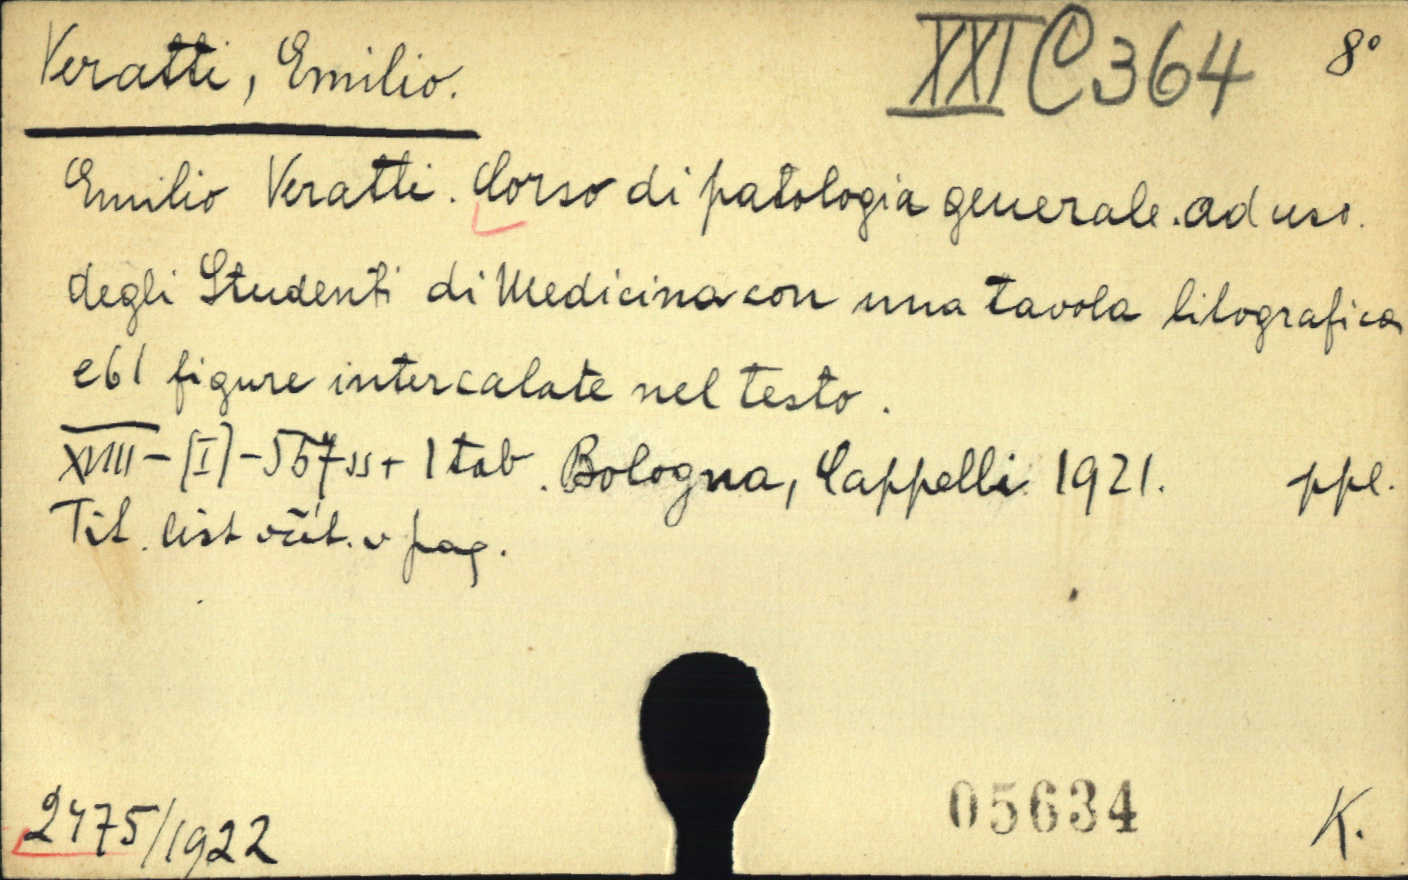 Veratti, Emilio.
XXI C 364
8°
Emilio Veratti. Corso di patologia generale. ad uso.
degli Studenti di Medicina con una tavola litografica
e 61 figure intercalate nel testo.
XVIII - [I] - 567 ss + 1 tab. Bologna, Cappelli 1921. ppl.
Tit. list včít. v pag.
2475/1922
05634
K.